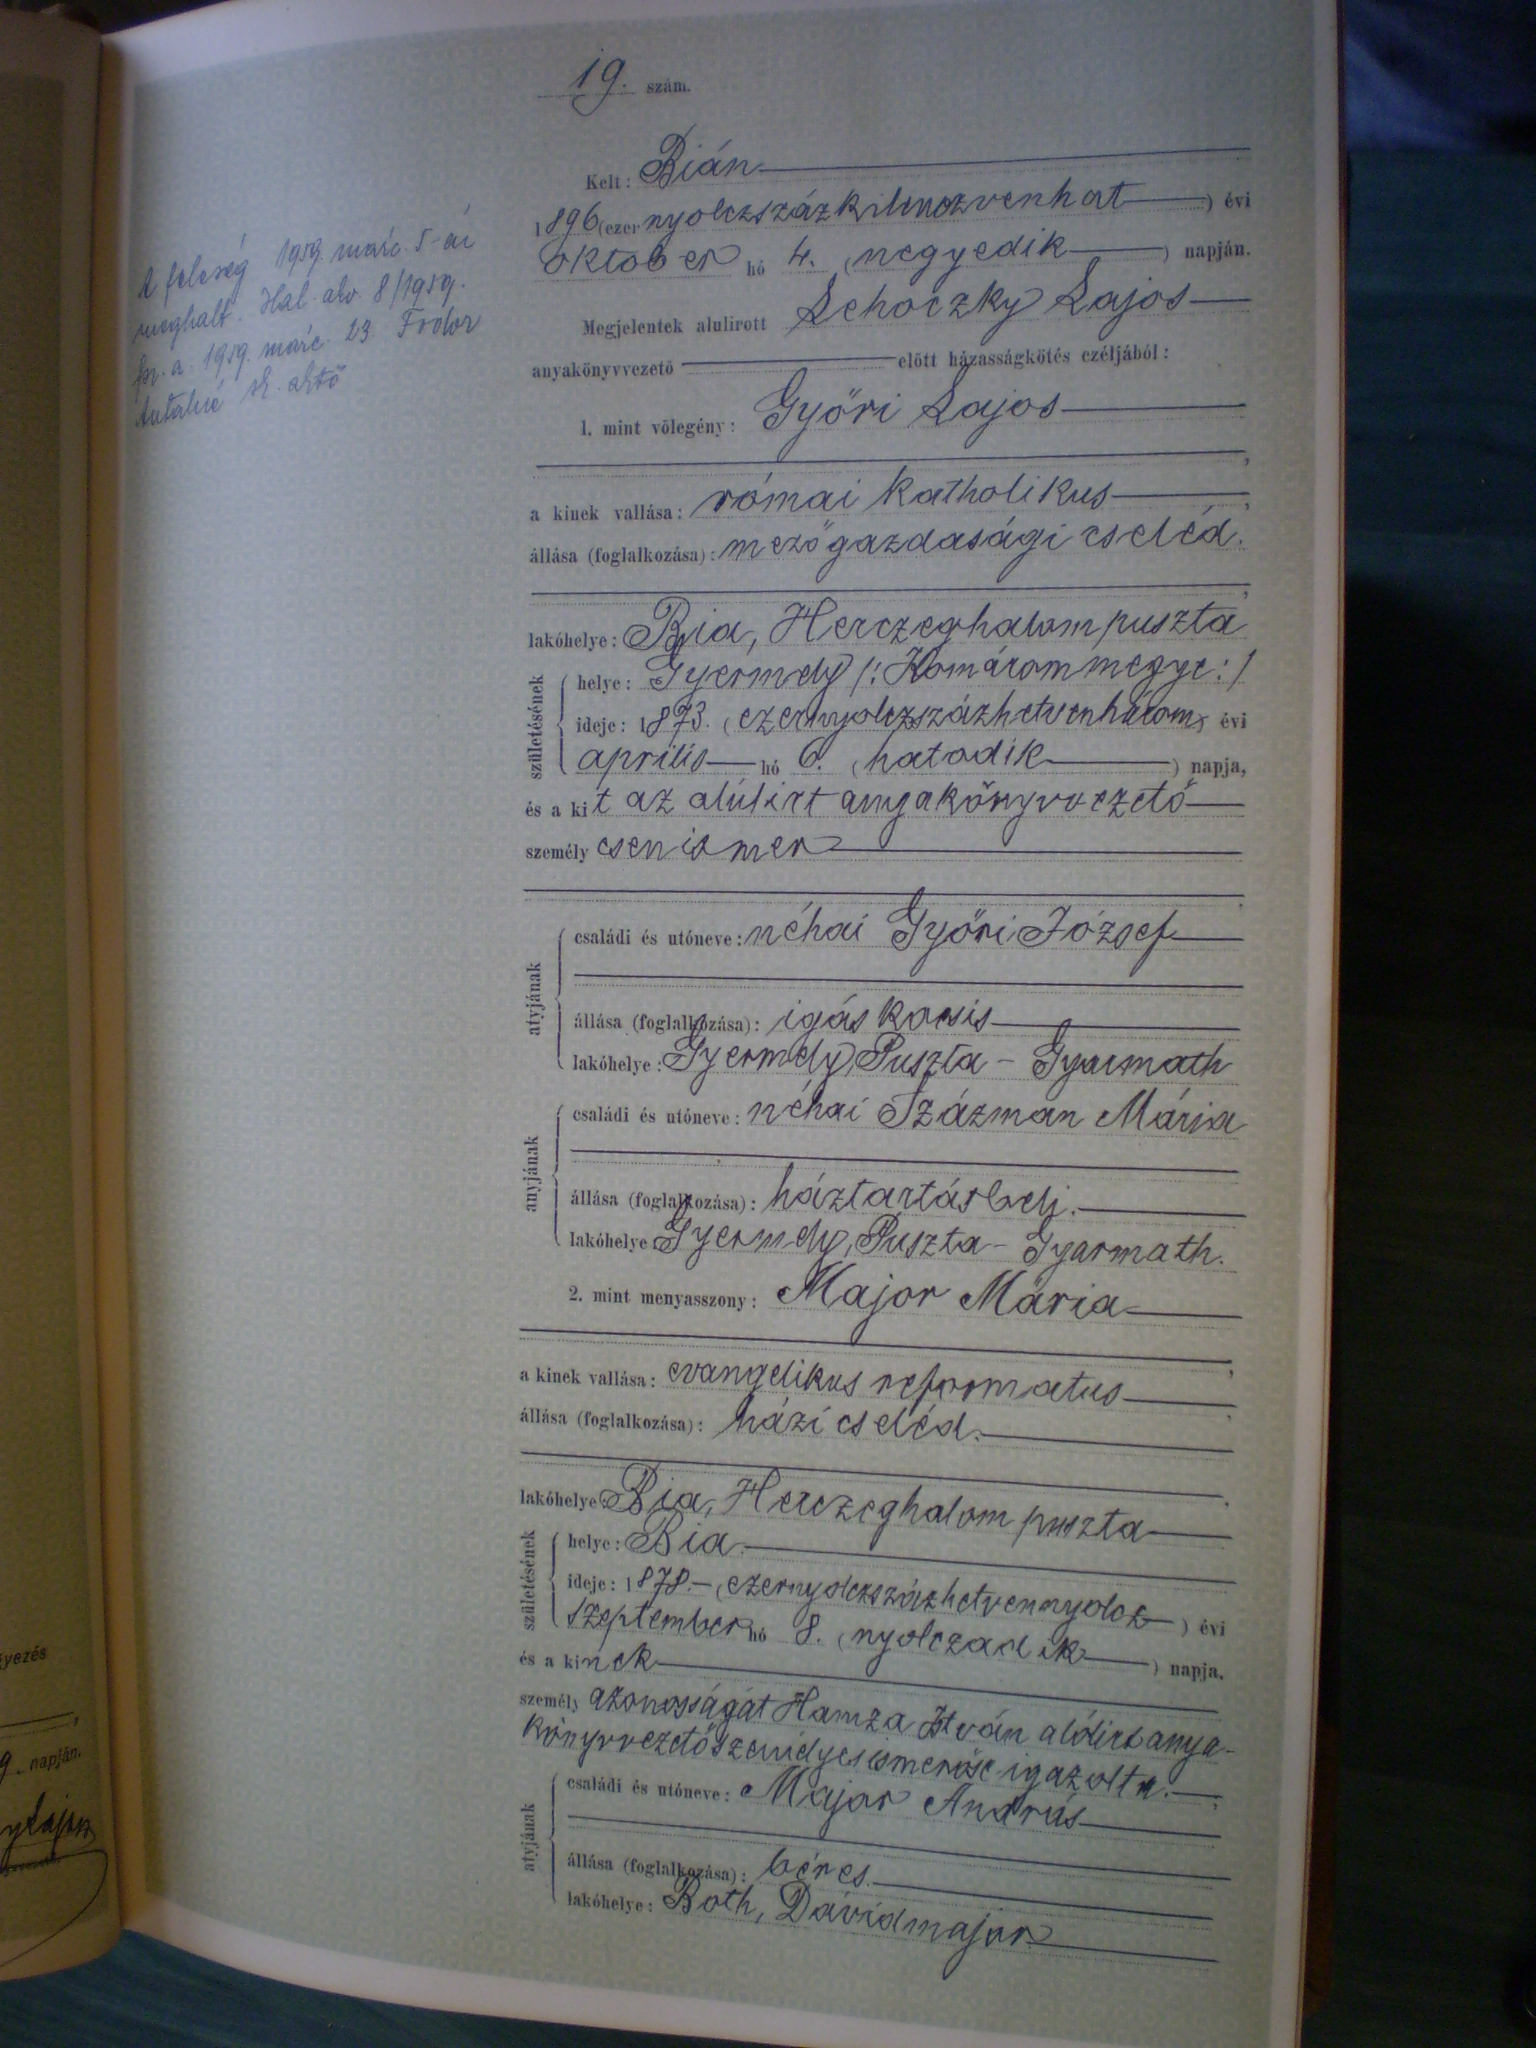 19. szám.
Kelt: Bián
1896 (ezernyolczszázkilenczvenhat) évi
október hó 4. (negyedik) napján.
Megjelentek alulirott Lehoczky Lajos
anyakönyvvezető előtt házasságkötés czéljából:
1. mint vőlegény: Győri Lajos
a kinek vallása: római katholikus
állása (foglalkozása): mezőgazdasági cseléd.
lakóhelye: Bia, Herczeghalom puszta
születésének
helye: Gyermely /: Komárom megye :/
ideje: 1873. (ezernyolczszázhetvenhárom) évi
április hó 6. (hatodik) napja,
és a kit az alúlirt anyakönyvvezető
személyesen ismer
atyjának
családi és utóneve: néhai Győri József
állása (foglalkozása): igás kocsis
lakóhelye: Gyermely, Puszta - Gyarmath
anyjának
családi és utóneve: néhai Százman Mária
állása (foglalkozása): háztartásbeli.
lakóhelye: Gyermely, Puszta - Gyarmath.
2. mint menyasszony: Major Mária
a kinek vallása: evangelikus reformatus
állása (foglalkozása): házi cseléd.
lakóhelye: Bia, Herczeghalom puszta
születésének
helye: Bia.
ideje: 1878. (ezernyolczszázhetvennyolcz) évi
szeptember hó 8. (nyolczadik) napja,
és a kinek
személy azonosságát Hamza István alólirt anya-
könyvvezető személyes ismerőse igazolta.
atyjának
családi és utóneve: Major András
állása (foglalkozása): béres.
lakóhelye: Both, Dávidmajor
A feleség 1959. márc. 5-én
meghalt. Hal. akv. 8/1959.
1959. márc. 23. Fodor
Antalné sk. aktő
yezés
9. napján.